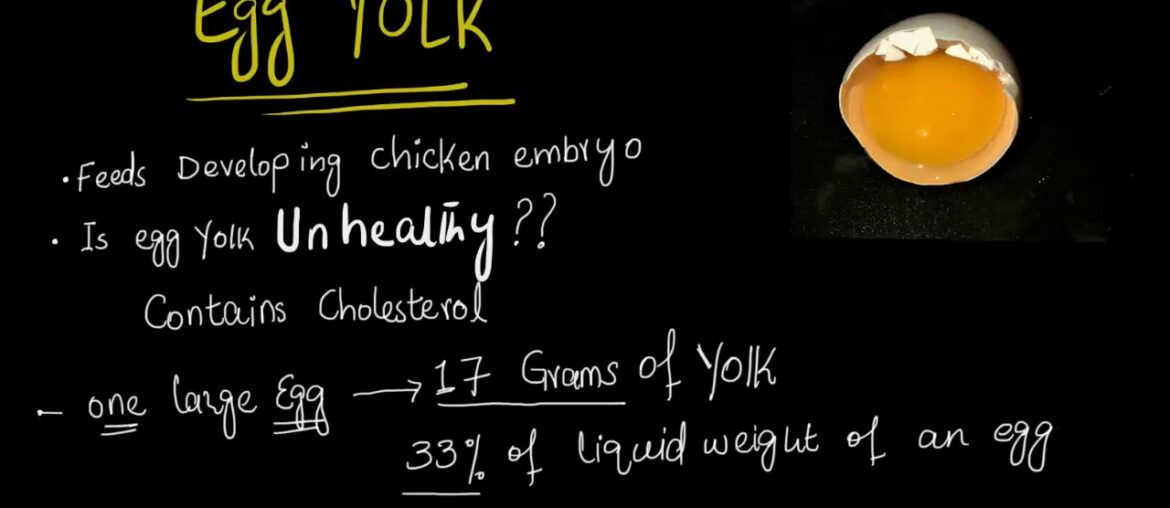 Egg YOLK
• Feeds Developing chicken embryo
• Is egg Yolk Unhealthy ??
Contains Cholesterol
- one large Egg → 17 Grams of Yolk
33% of liquid weight of an egg